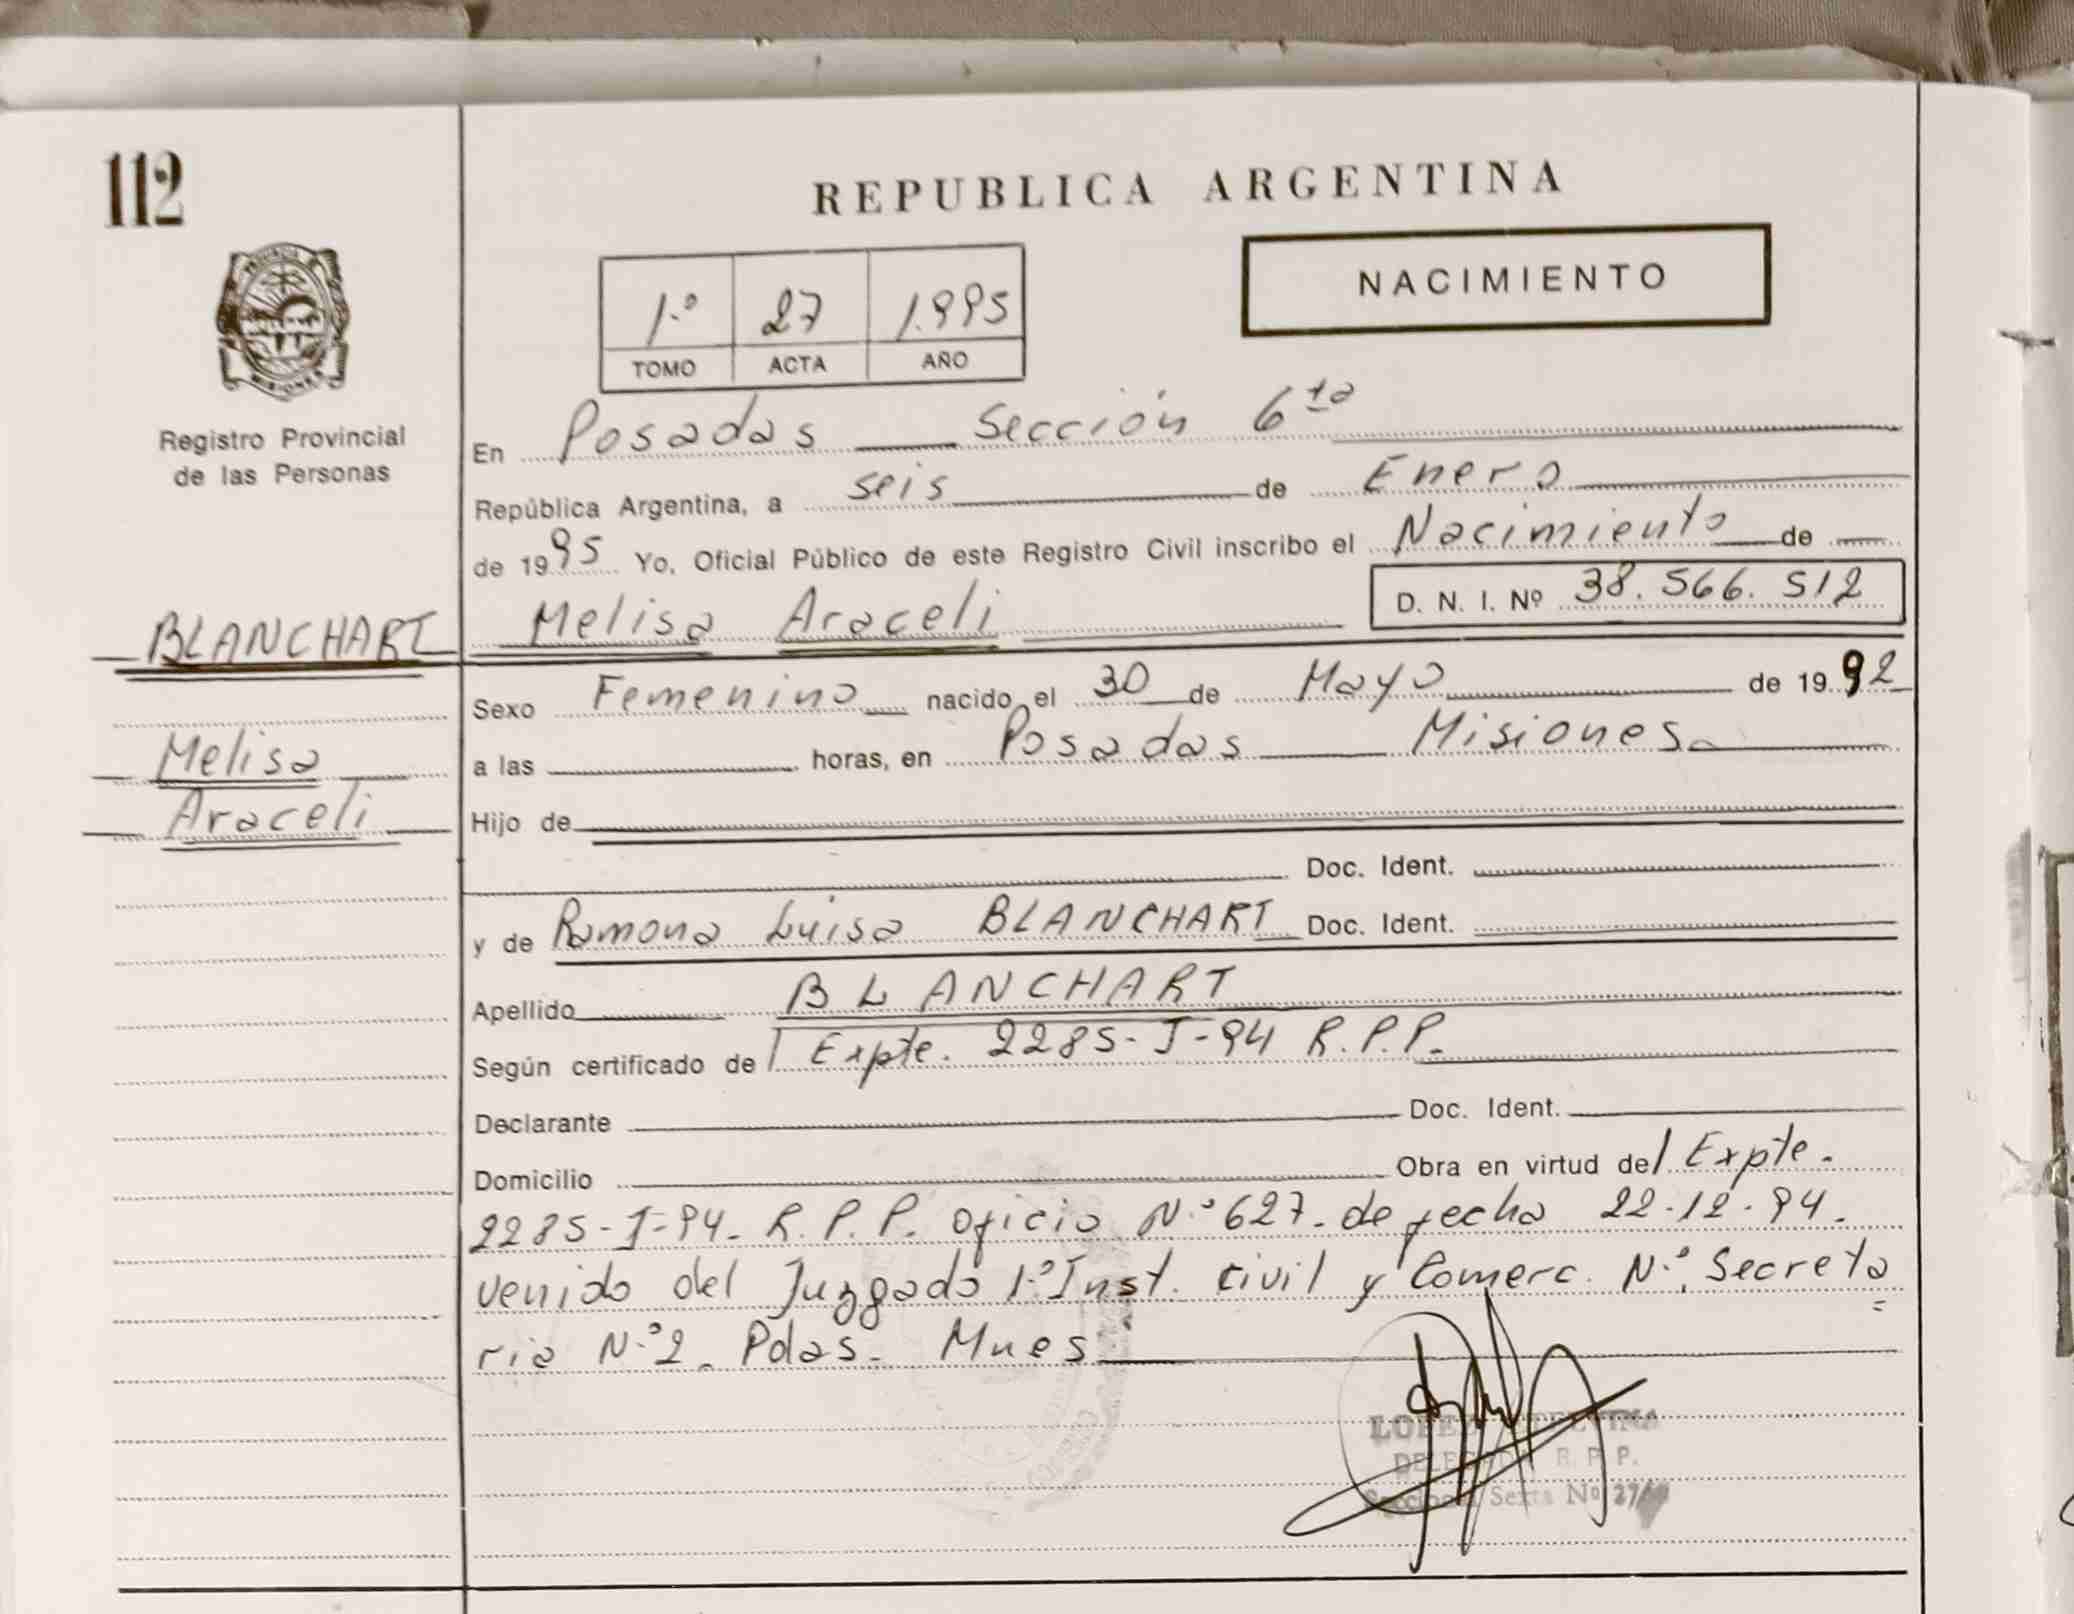 112
REPUBLICA ARGENTINA
NACIMIENTO
1.º 27 1.995
TOMO ACTA AÑO
Registro Provincial
de las Personas
En Posadas Sección 6ta
República Argentina, a seis de Enero
de 1995 Yo, Oficial Público de este Registro Civil inscribo el Nacimiento de
D. N. I. Nº 38.566.512
BLANCHART Melisa Araceli
Sexo Femenino nacido el 30 de Mayo de 1992
Melisa
a las horas, en Posadas Misiones
Araceli
Hijo de
Doc. Ident.
y de Ramona Luisa BLANCHART Doc. Ident.
Apellido BLANCHART
Según certificado de Expte. 2285-I-94 R.P.P.
Declarante Doc. Ident.
Domicilio Obra en virtud del Expte.
2285-I-94. R.P.P. Oficio N.º 627. de fecha 22.12.94.
venido del Juzgado 1.º Inst. Civil y Comerc. N.º Secreta
ria N.º 2. Pdas. Mnes
R. P. P.
Sexta Nº